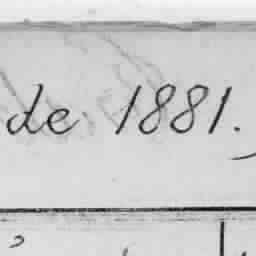 de 1881.